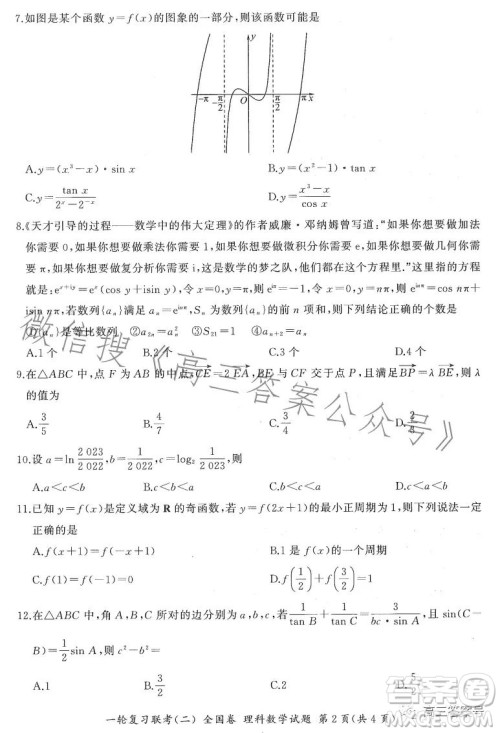 7.如图是某个函数 y=f(x)的图象的一部分,则该函数可能是
y
-π -π/2 O π/2 π x
A.y=(x³-x)·sin x B.y=(x²-1)·tan x
C.y=tan x/(2ˣ-2⁻ˣ) D.y=(x³-x)/cos x
8.《天才引导的过程——数学中的伟大定理》的作者威廉·邓纳姆曾写道:“如果你想要做加法
你需要 0,如果你想要做乘法你需要 1,如果你想要做微积分你需要 e,如果你想要做几何你需
要 π,如果你想要做复分析你需要 i,这是数学的梦之队,他们都在这个方程里.”这个方程就是:
eˣ⁺ⁱʸ=eˣ(cos y+isin y),令 x=0,y=π,则 eⁱᵖ+1=0,令 x=0,y=nπ,则 eⁱⁿᵖ=cos nπ+
isin nπ.若数列{aₙ}满足 aₙ=eⁱⁿᵖ,Sₙ 为数列{aₙ}的前 n 项和,则下列结论正确的个数是
①{aₙ}是等比数列 ②a₂ₙ=aₙ² ③S₂₁=1 ④
A.1个 B.2个 C.3个 D.4个
9.在△ABC 中,点 F 为 AB 的中点,CE=2EA,BE 与 CF 交于点 P,且满足BP=λBE,则 λ
的值为
A.3/5 B.4/7 C.3/4 D.
10.设 a=ln 2 023/2 022,b=1/2 022,c=log₂ 2 023/2 022,则
A.a<c<b B.a<b<c C.b<c<a D.b<a<c
11.已知 y=f(x)是定义域为 R 的奇函数,若 y=f(2x+1)的最小正周期为 1,则下列说法一定
正确的是
A.f(x+1)=f(x) B.1是 f(x)的一个周期
C.f(1)=f(0)=0 D.f(1/2)=f(3/2)
12.在△ABC 中,角 A,B,C 所对的边分别为 a,b,c,若
sin(C-
B)=1/2 sin A,则 c²-b²=
A.1/2 B.1 C.2
一轮复习联考(二) 全国卷 理科数学试题 第 2 页(共 4 页)
微信搜《高三答案公众号》